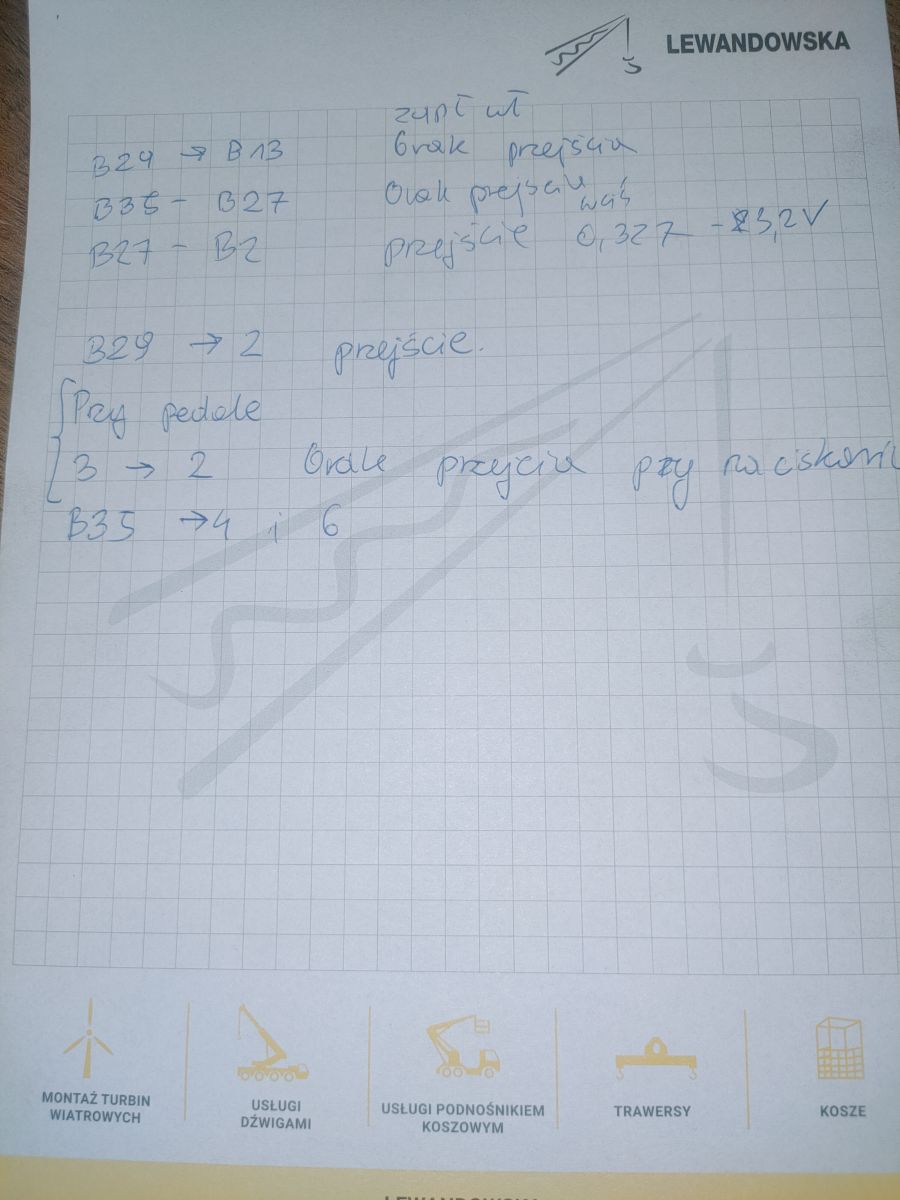 LEWANDOWSKA
zapł wł
B24 → B13 brak przejścia
B35 - B27 brak przejścia
B27 - B2 przejście wciś 0,327 - 3,2V
B29 → 2 przejście.
Przy pedale
3 → 2 brak przejcia przy naciskani
B35 → 4 i 6
MONTAŻ TURBIN
WIATROWYCH
USŁUGI
DŹWIGAMI
USŁUGI PODNOŚNIKIEM
KOSZOWYM
TRAWERSY
KOSZE
LEWANDOWSKA